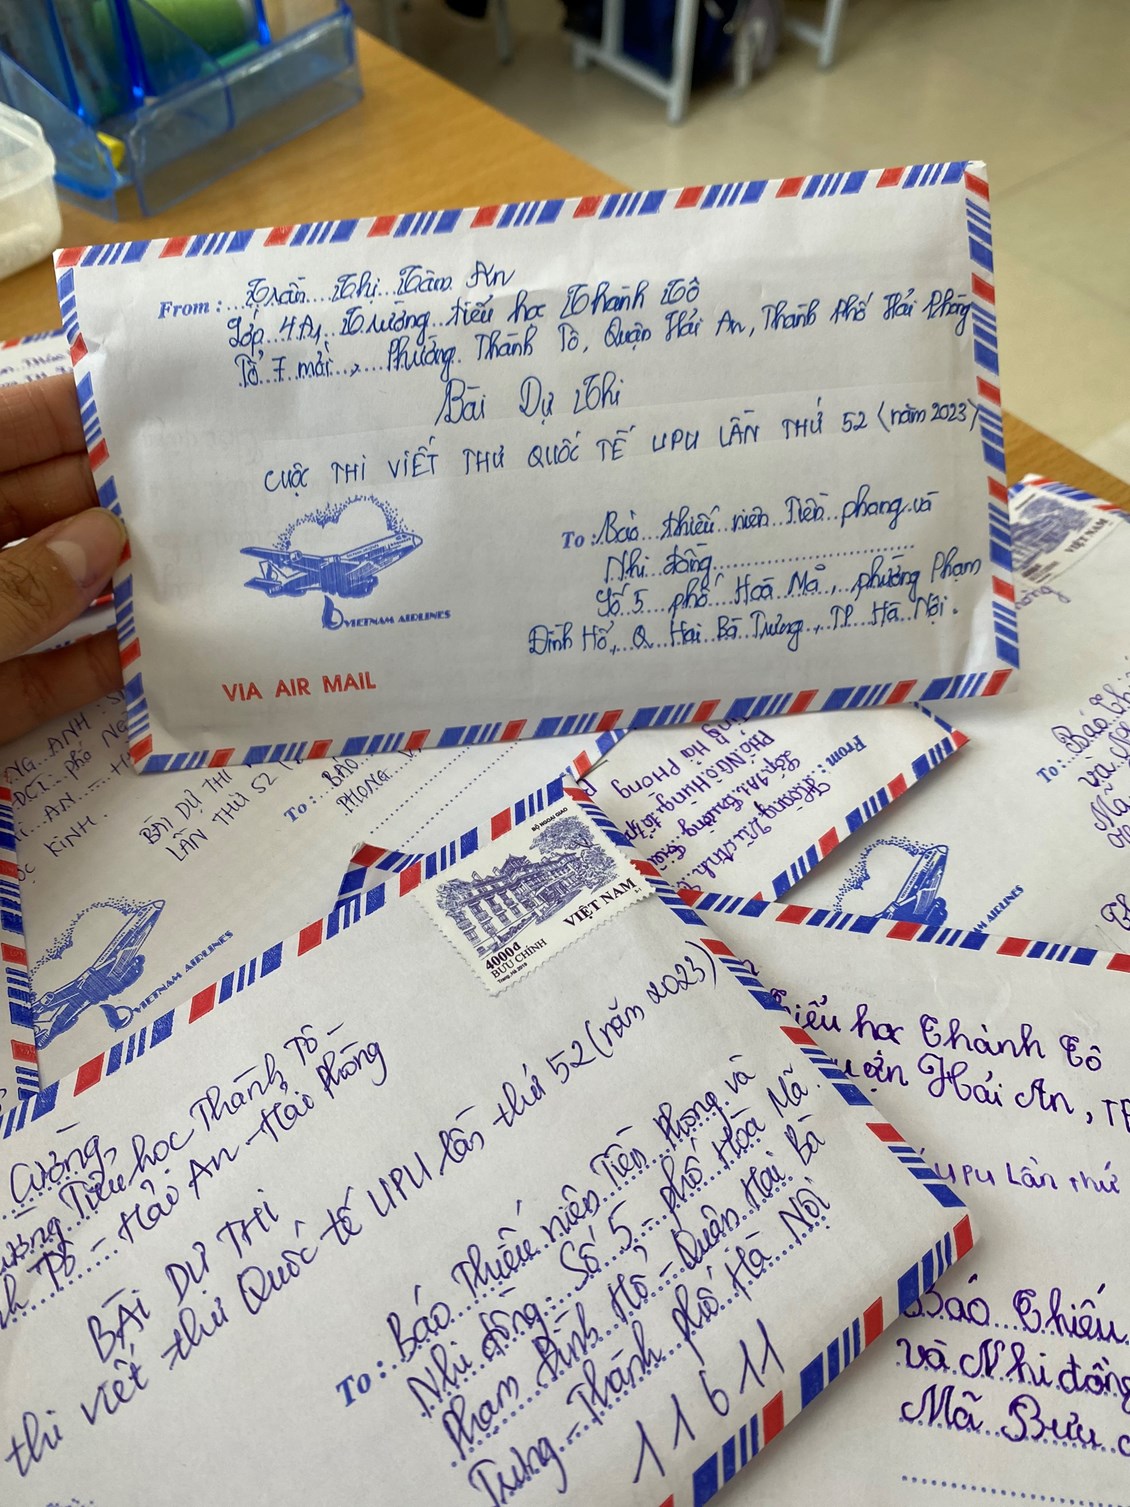 From : Trần Thị Tâm An
Lớp 4A4 Trường tiểu học Thành Tô
Tổ 7 mới, Phường Thành Tô, Quận Hải An, Thành Phố Hải Phòng
Bài Dự Thi
CUỘC THI VIẾT THƯ QUỐC TẾ UPU LẦN THỨ 52 (năm 2023)
To : Báo thiếu niên Tiền phong và
Nhi đồng
Số 5 phố Hoà Mã, phường Phạm
Đình Hổ, Q Hai Bà Trưng, TP Hà Nội.
VIETNAM AIRLINES
VIA AIR MAIL
NG ANH
phố
AN
KINH.
BÀI DỰ THI
LẦN THỨ 52
To :
BÁO
PHONG
VIETNAM AIRLINES
From : Hoàng
Lớp 4A
Phố Ngô Hùng
Hải Phòng
VIỆT NAM
To : Báo Thi
và
Mã
AIRLINES
BỘ NGOẠI GIAO
VIỆT NAM
4000đ
BƯU CHÍNH
Cường,
ường Tiểu học Thành Tô -
h Tô - Hải An - Hải Phòng
BÀI DỰ THI
thi viết thư Quốc tế UPU lần thứ 52 (năm 2023)
To : Báo Thiếu niên Tiền Phong và
Nhi đồng - Số 5 - phố Hoà Mã -
Phạm Đình Hổ - Quận Hai Bà
Trưng - Thành phố Hà Nội
11611
iểu học Thành Tô
uận Hải An, TP
UPU Lần thứ
Báo Thiếu
và Nhi đồng
Mã Bưu